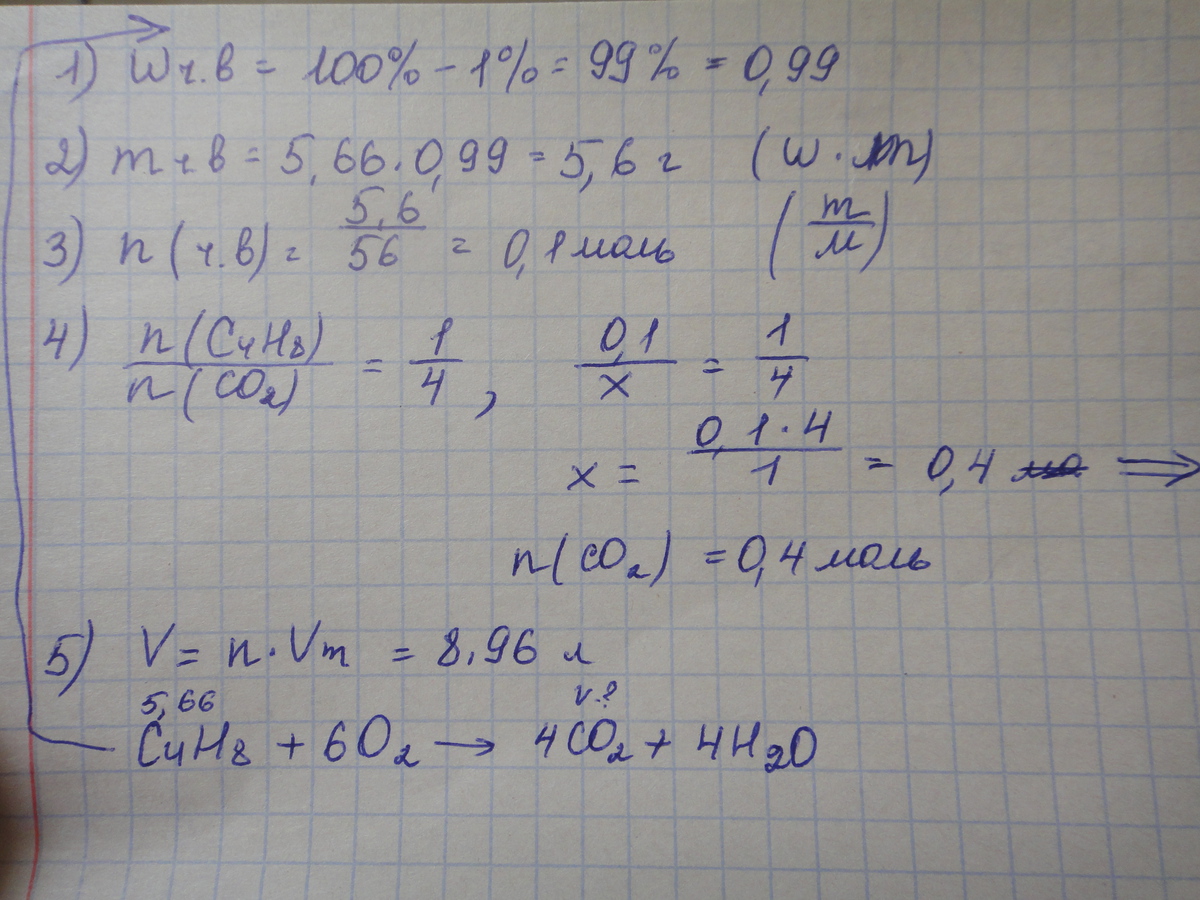 1) Wч.в = 100% - 1% = 99% = 0,99
2) mч.в = 5,66 · 0,99 = 5,6 г (W · m)
3) n (ч.в) = 5,6/56 = 0,1 моль (m/M)
4) n(C4H8)/n(CO2) = 1/4, 0,1/x = 1/4
x = 0,1·4/1 = 0,4 ⇒
n(CO2) = 0,4 моль
5) V = n·Vm = 8,96 л
5,66 V-?
C4H8 + 6O2 → 4CO2 + 4H2O